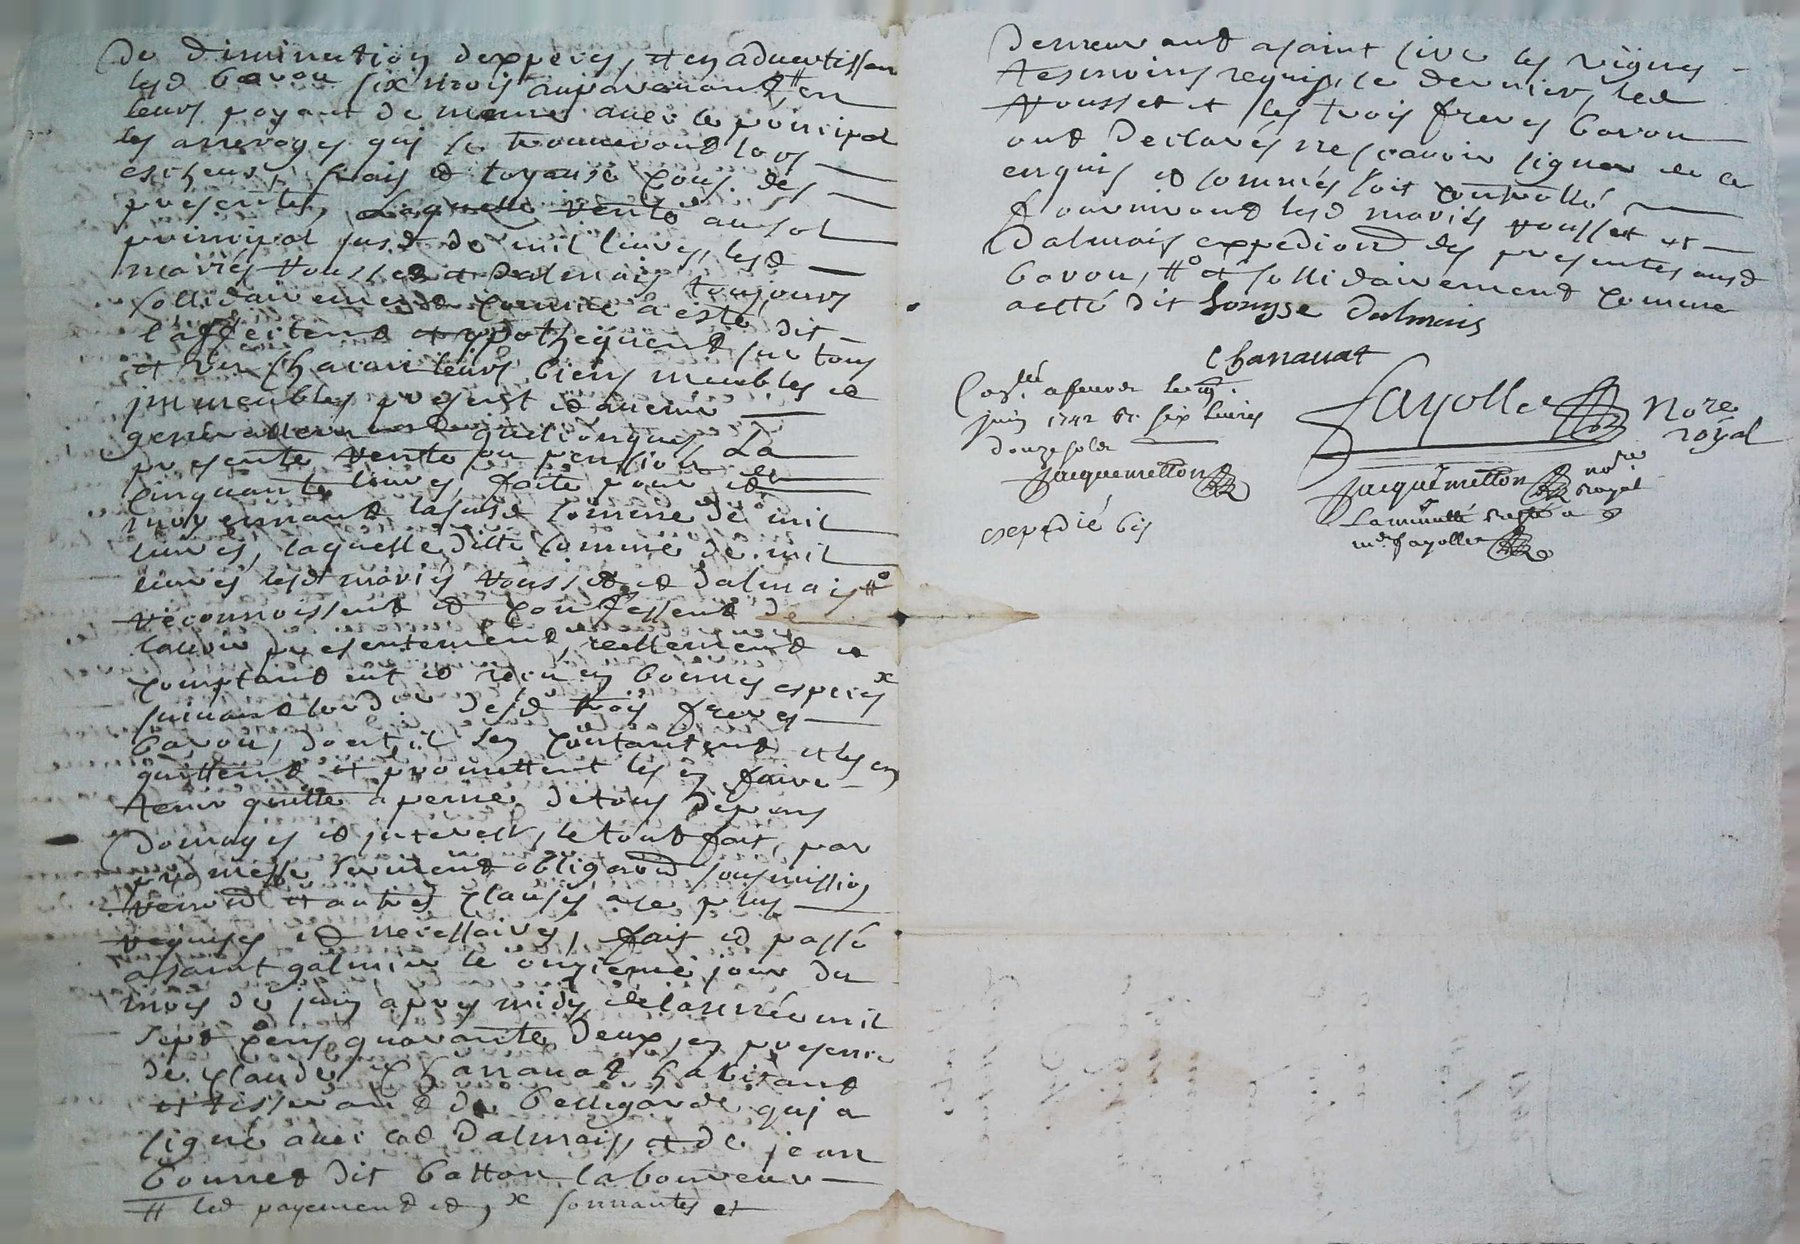 De diminution d'especes, et en advertissant
lesd bavou six mois auparavant, # en
leurs payant de meme avec le principal
les arrerages qui se trouveront lors
escheus, frais et loyaux cous. des
presentes, laquelle vente au sol
principal susd de mil livres, lesd
mariés Rousset et Dalmais toujours
sollidairement comme a esté dit
l'affectent et ypothequent sur tous
et un chacun leurs biens meubles et
immeubles present et avenir
generallement quelconques La
presente vente ou pension de
cinquante livres, faite pour et
moyennant la susd somme de mil
livres, laquelle ditte somme de mil
livres lesd mariés Rousset et Dalmais #o
reconnoissent et confessent de
lavoir presentement, reellement et
comptant eut et receu en bonnes especes x
suivant lordre desd trois freres
bavou, dont il sen contantent et les en
quittent et promettent les en faire
tenir quitte a peine de tous depans
Domages et interest, le tout fait, par
promesse serment obligaon sousmission
renon et autres clauses a ce plus
requises et necessaires, fait et passé
a saint galmier le onzieme jour du
mois de juin apres midy, de lannée mil
sept cens quarante deux, en presence
de claude Chanavat habitant
et tisserand de bellegarde qui a
signé avec lad Dalmais, et de jean
bonnet dit batton laboureur
# led payement et, x sonnantes et
demeurant a saint cire les vignes
tesmoins requis, ce dernier, led
Rousset et les trois freres bavou
ont declarés ne scavoir signer de ce
enquis et sommés soit controllé,
fourniront lesd mariés Rousset et
Dalmais expedion des presentes ausd
bavou, #o et sollidairement comme
a esté dit Lonyse Dalmais
Chanavat
Con.lé a feurs le
juin 1742 R. six livres
douze sols
Jacquemetton
Fayolle Nore
royal
Jacquemetton nore
Royal
La minutte restée a
md fayolle
expedié bis